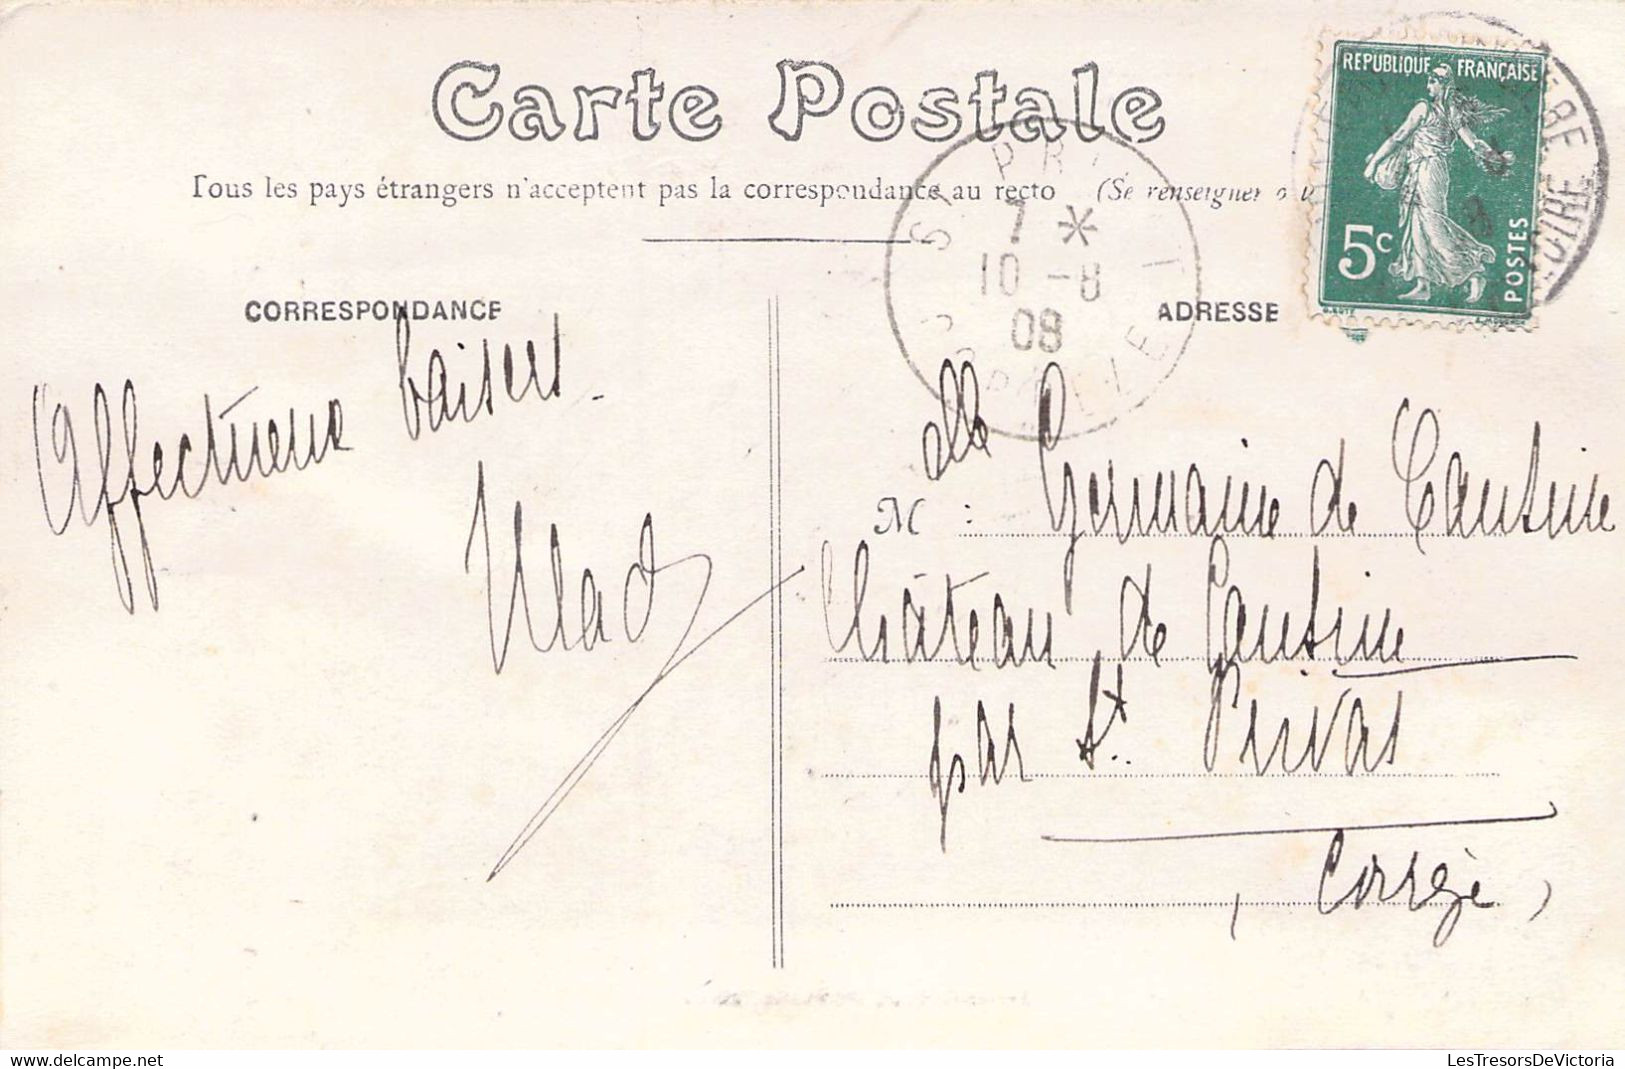 Carte Postale
Tous les pays étrangers n'acceptent pas la correspondance au recto (Se renseigner
RÉPUBLIQUE FRANÇAISE
5c
POSTES
7 *
10 - 8
08
CORRESPONDANCE
ADRESSE
Affectueux baisers.
Mad
M : elle Germaine de Cantine
Château de Cantine
par St. Privas
(Corrèze)
LesTresorsDeVictoria